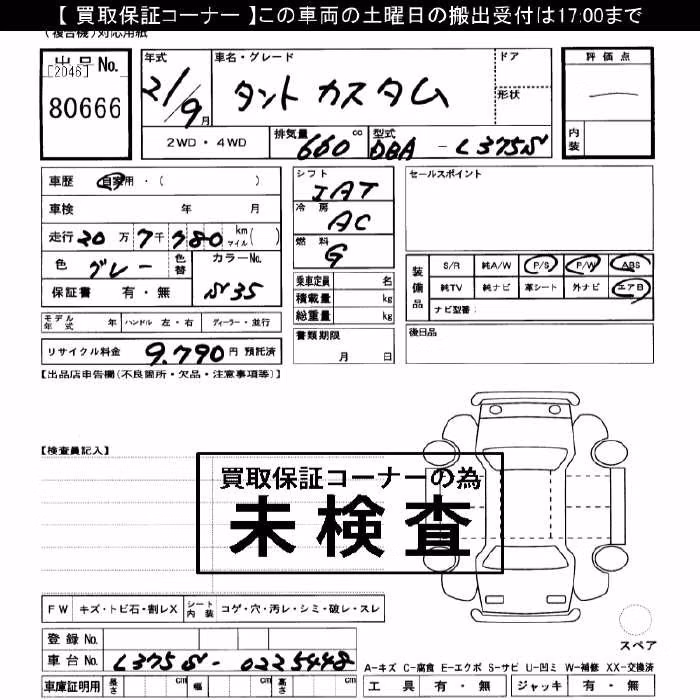 【 買取保証コーナー 】この車両の土曜日の搬出受付は17:00まで
(複合機)対応用紙
出品No. [2046] 80666
年式 21/9月
車名・グレード タント カスタム
ドア
形状
評価点
内装
2WD・4WD
排気量 660 cc
型式 DBA - L375S
車歴 自家用・( )
車検 年 月
走行 20万7千980 km マイル( )
色 グレー 色替 カラーNo. S35
保証書 有・無
シフト IAT
冷房 AC
燃料 G
乗車定員 名
積載量 kg
総重量 kg
セールスポイント
装備品
S/R 純A/W P/S P/W ABS
純TV 純ナビ 革シート 外ナビ エアB
ナビ型番:
モデル年式 年 ハンドル 左・右 ディーラー・並行
リサイクル料金 9,790 円 預託済
書類期限 月 日
後日品
【出品店申告欄(不良箇所・欠品・注意事項等)】
【検査員記入】
買取保証コーナーの為
未検査
FW キズ・トビ石・割レX シート内装 コゲ・穴・汚レ・シミ・破レ・スレ
スペア
登録No.
車台No. L375S-0225448
A-キズ C-腐食 E-エクボ S-サビ U-凹ミ W-補修 XX-交換済
車庫証明用 長さ cm 幅 cm 高さ cm
工具 有・無 ジャッキ 有・無